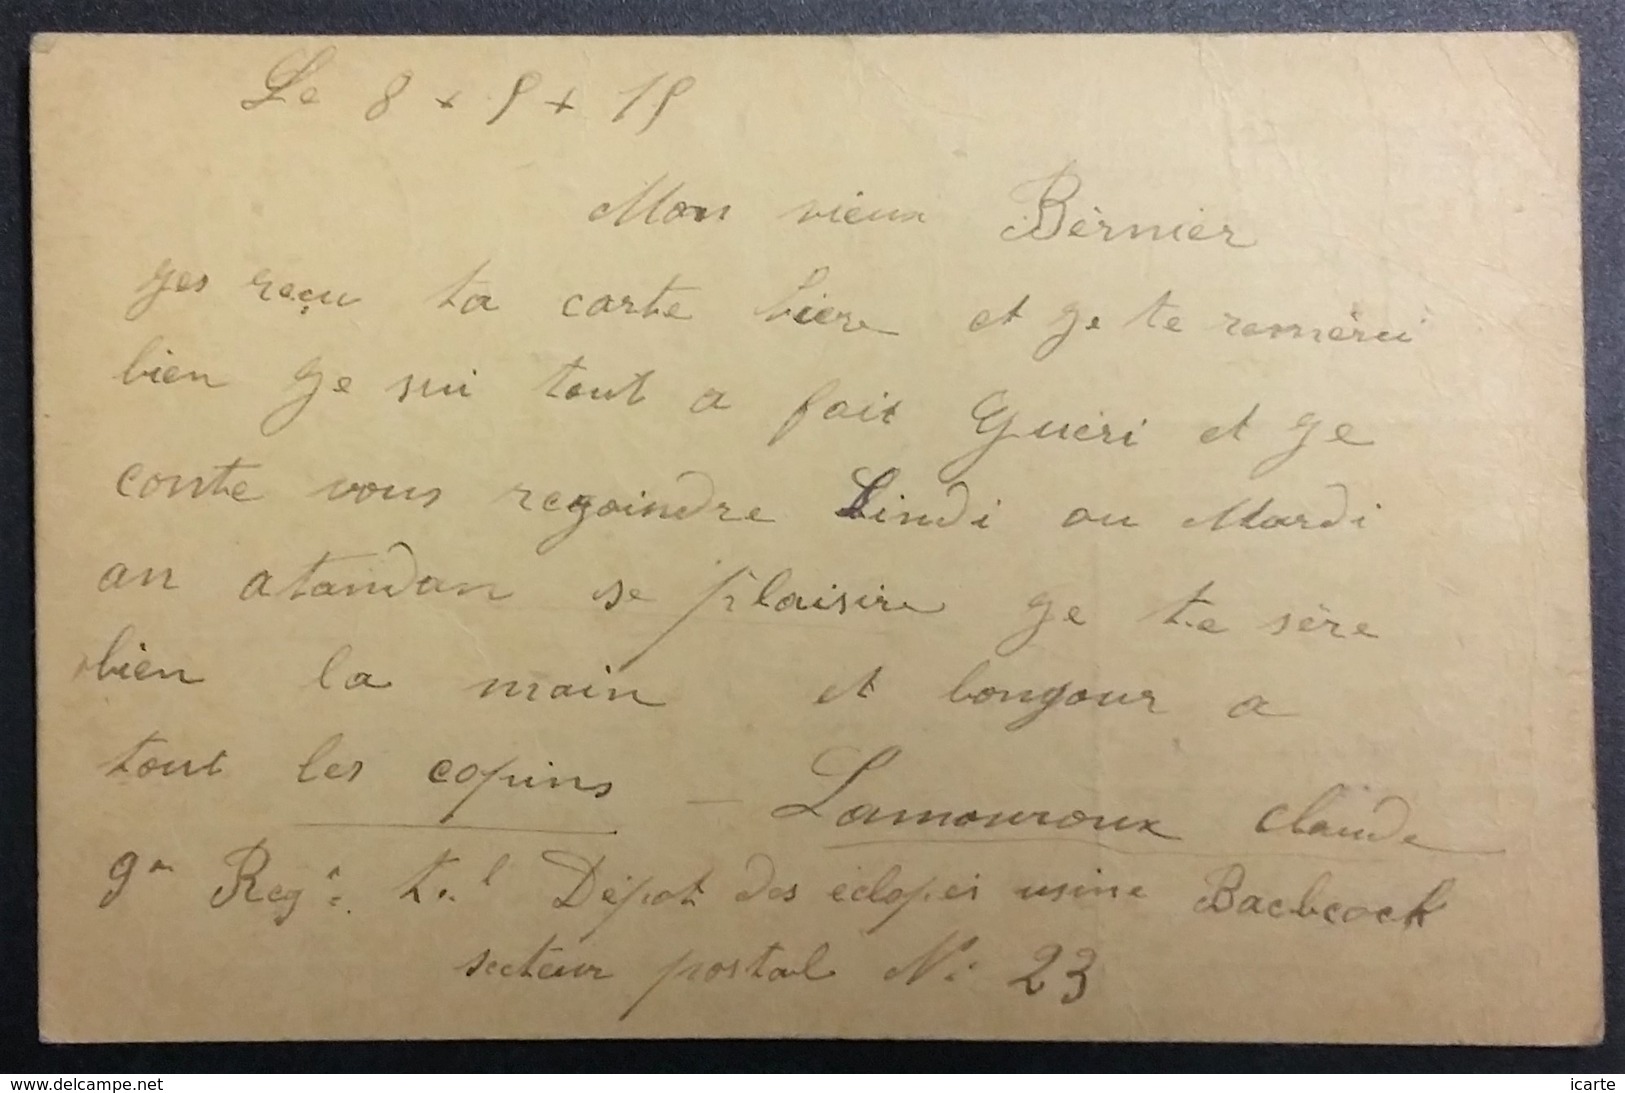 Le 8 + 5 + 15
Mon vieux Bèrnier
ges reçu ta carte hiere et ge te remèrci
bien ge sui tout a fait Guèri et ge
conte vous regoindre Lindi ou Mardi
an atandan se plaisire ge te sère
bien la main et bongour a
tout les copins – Lamouroux claude
9m Regt. t.l Dépot des éclopés usine Bacbcock
secteur postal No: 23
www.delcampe.net
icarte